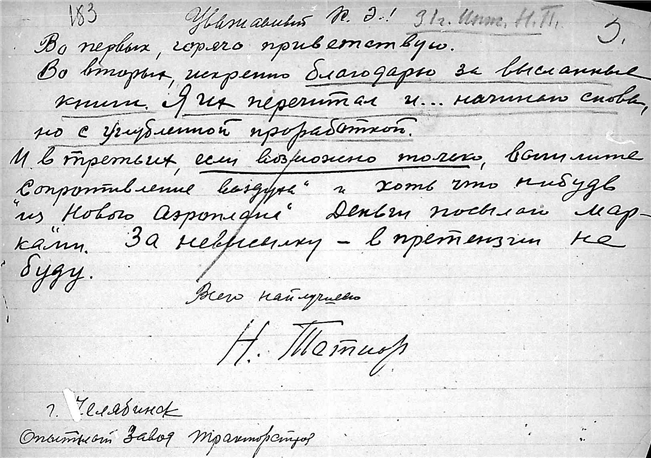 183 Уважаемый К. Э.! 31г. Инт. Н.П. 5.
Во первых, горячо приветствую.
Во вторых, искренно благодарю за высланные
книги. Я их перечитал и... начинаю снова,
но с углубленной проработкой.
И в третьих, если возможно только, вышлите
"Сопротивление воздуха" и хоть что нибудь
"из Нового Аэроплана" Деньги посылаю мар-
ками. За невысылку – в претензии не
буду.
Всего наилучшего
Н.
г. Челябинск
Опытный Завод Тракторстроя